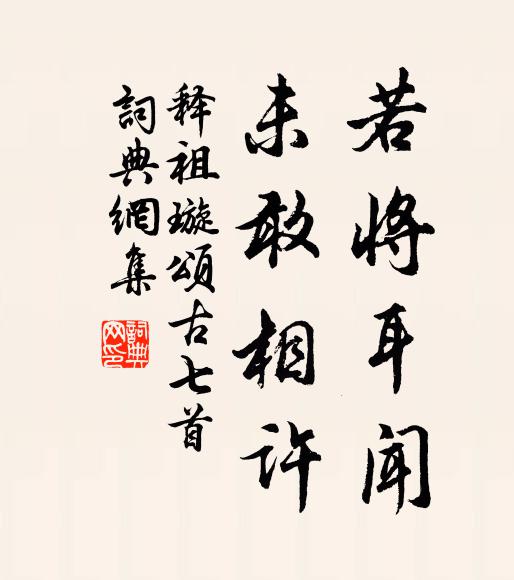 若将耳闻
未敢相许
释祖璇颂古七首
詞典網集
詞典网印